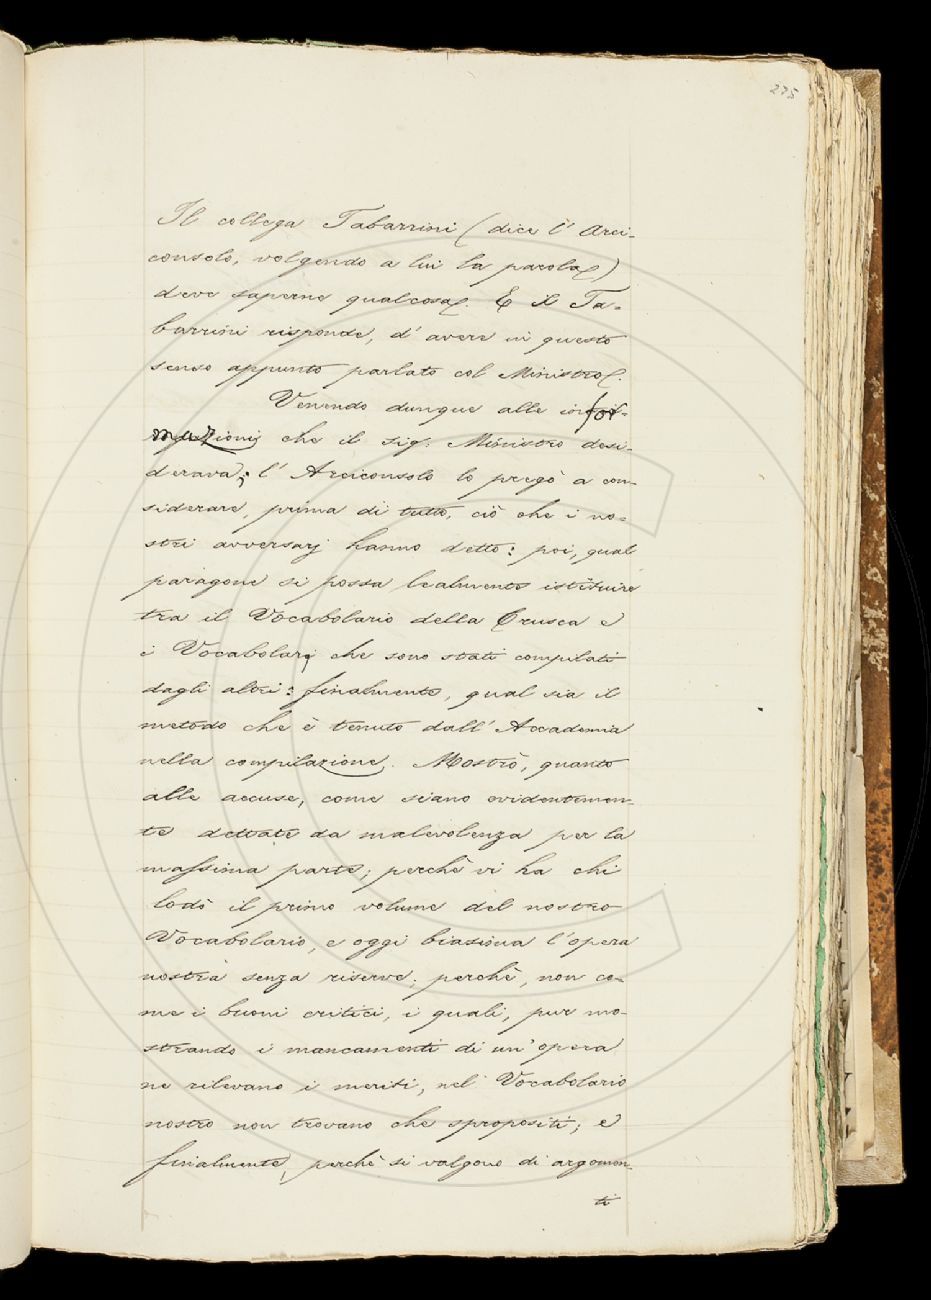 235
Il collega Tabarrini (dice l' Arci-
consolo, volgendo a lui la parola)
deve saperne qualcosa. E il Ta-
barrini risponde, d' avere in questo
senso appunto parlato col Ministro.
Venendo dunque alle infor-
mazioni che il sig. Ministro desi-
derava; l' Arciconsolo lo pregò a con-
siderare, prima di tutto, ciò che i no-
stri avversarj hanno detto: poi, qual
paragone si possa lealmente istituire
tra il Vocabolario della Crusca e
i Vocabolarj che sono stati compilati
dagli altri: finalmente, qual sia il
metodo che è tenuto dall' Accademia
nella compilazione. Mostrò, quanto
alle accuse, come siano evidentemen-
te dettate da malevolenza per la
massima parte; perchè vi ha chi
lodò il primo volume del nostro
Vocabolario, e oggi biasima l' opera
nostra senza riserve; perchè, non co-
me i buoni critici, i quali, pur mo-
strando i mancamenti di un' opera
ne rilevano i meriti, nel Vocabolario
nostro non trovano che spropositi; e
finalmente, perchè si valgono di argomen-
ti